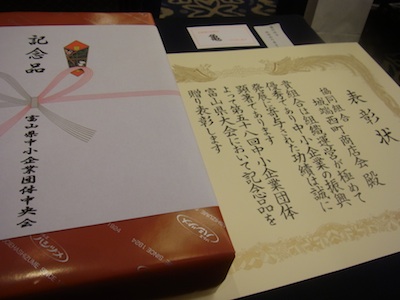 表彰状
協同組合
城端西町商店会 殿
貴組合は組織運営が極めて
優秀であり中小企業の振興
発展に寄与された功績は誠に
顕著であります
よって第五十八回中小企業団体
富山県大会において記念品を
贈り表彰します
記念品
富山県中小企業団体中央会